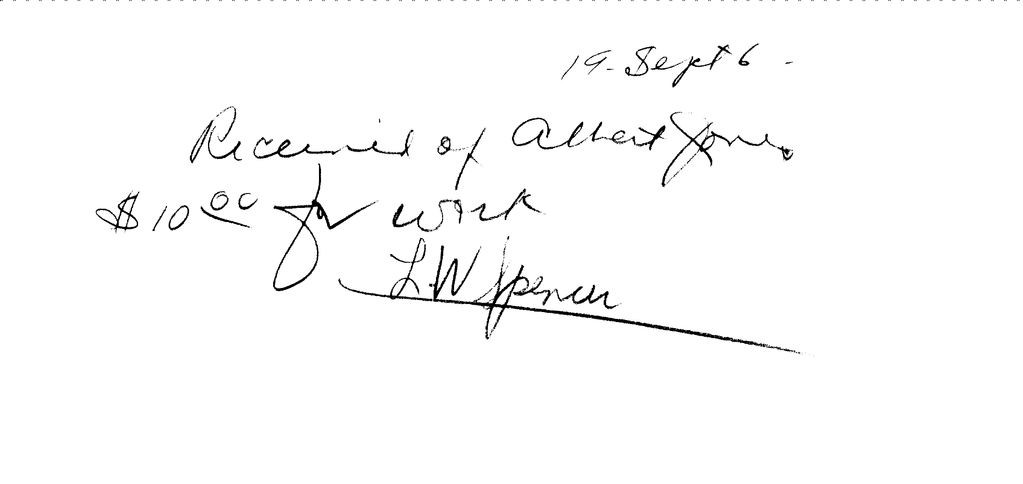 19 - Sept 6 -
Received of Albert Jones
$10 00 for work
L.W Spencer